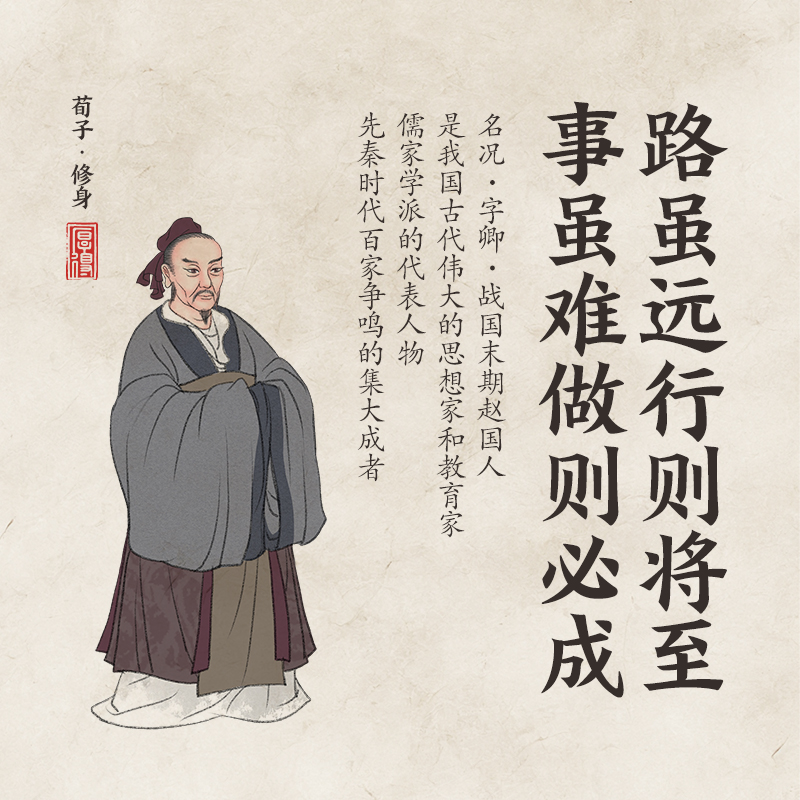 路虽远行则将至
事虽难做则必成
名况·字卿·战国末期赵国人
是我国古代伟大的思想家和教育家
儒家学派的代表人物
先秦时代百家争鸣的集大成者
荀子·修身